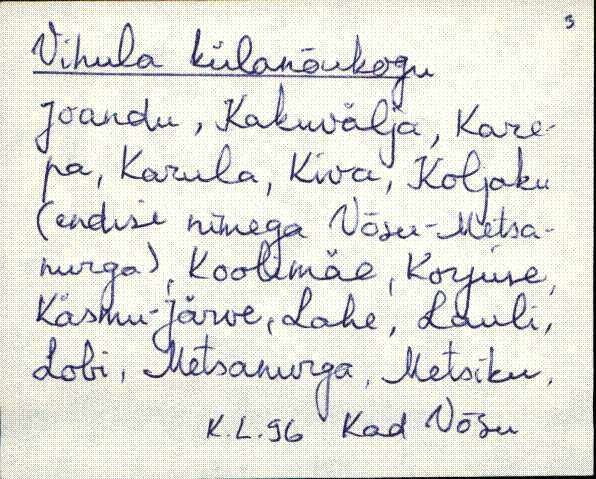 3
Vihula külanõukogu
Joandu, Kakuvälja, Kare-
pa, Karula, Kiva, Koljaku
(endise nimega Võsu-Metsa-
nurga), Koolimäe, Korjuse,
Käsmu-Järve, Lahe, Lauli,
Lobi, Metsanurga, Metsiku,
K.L.96 Kad Võsu